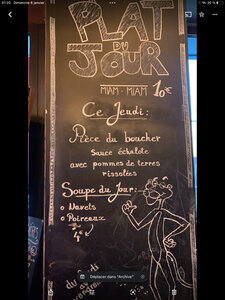 01:20 Dimanche 8 janvier
20 %
PLAT
DU
JOUR
MIAM - MIAM 10€
Ce Jeudi :
Pièce du boucher
Sauce échalote
avec pommes de terres
rissolées
Soupe du Jour :
o Navets
o Poireaux
4€
Déplacer dans "Archive"